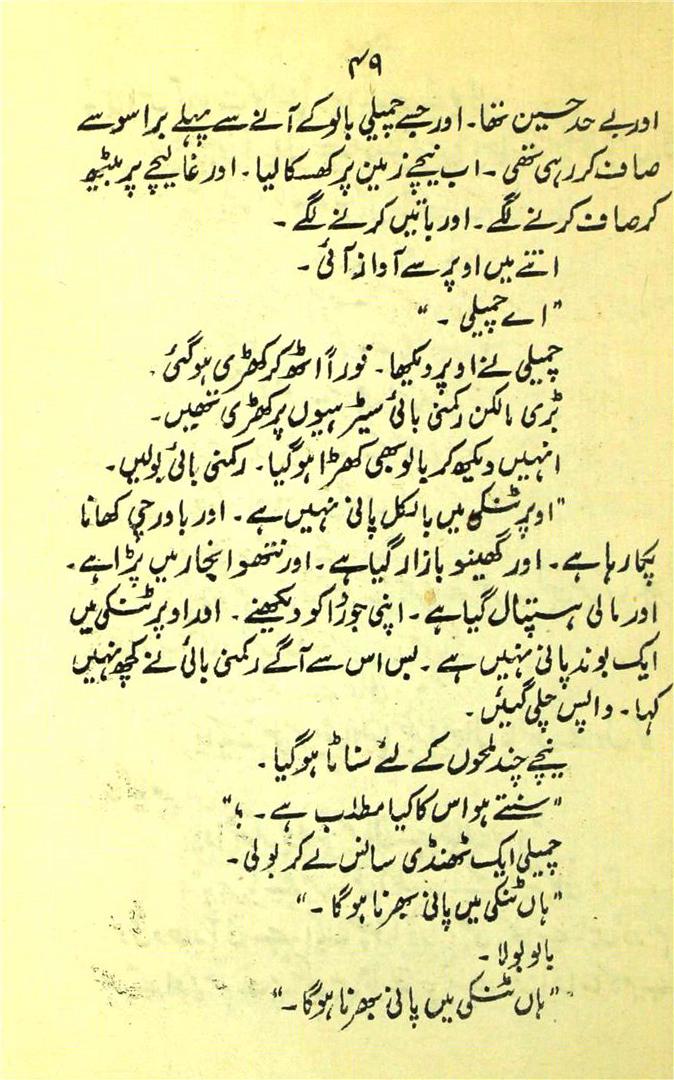 ۴۹
اور بے حد حسین تھا۔ اور جسے چمپلی بالو کے آنے سے پہلے براسو سے
صاف کر رہی تھی۔ اب نیچے زمین پر کھسکا لیا۔ اور غالیچے پر بیٹھ
کر صاف کرنے لگے۔ اور باتیں کرنے لگے۔
اتنے میں اوپر سے آواز آئی۔
"اے چمپلی۔"
چمپلی نے اوپر دیکھا۔ فوراً اٹھ کر کھڑی ہو گئی۔
بڑی مالکن رکمنی بائی سیڑھیوں پر کھڑی تھیں۔
انہیں دیکھ کر بالو بھی کھڑا ہو گیا۔ رکمنی بائی بولیں۔
"اوپر ٹنکی میں بالکل پانی نہیں ہے۔ اور باورچی کھانا
پکا رہا ہے۔ اور گھینو بازار گیا ہے۔ اور نتھو بخار میں پڑا ہے۔
اور مالی ہسپتال گیا ہے۔ اپنی جورُا کو دیکھنے۔ اور اوپر ٹنکی میں
ایک بوند پانی نہیں ہے۔ بس اس سے آگے رکمنی بائی نے کچھ نہیں
کہا۔ واپس چلی گئیں۔
نیچے چند لمحوں کے لئے سناٹا ہو گیا۔
"سنتے ہو اس کا کیا مطلب ہے۔؟"
چمپلی ایک ٹھنڈی سانس لے کر بولی۔
"ہاں ٹنکی میں پانی بھرنا ہو گا۔"
بالو بولا۔
"ہاں ٹنکی میں پانی بھرنا ہو گا۔"